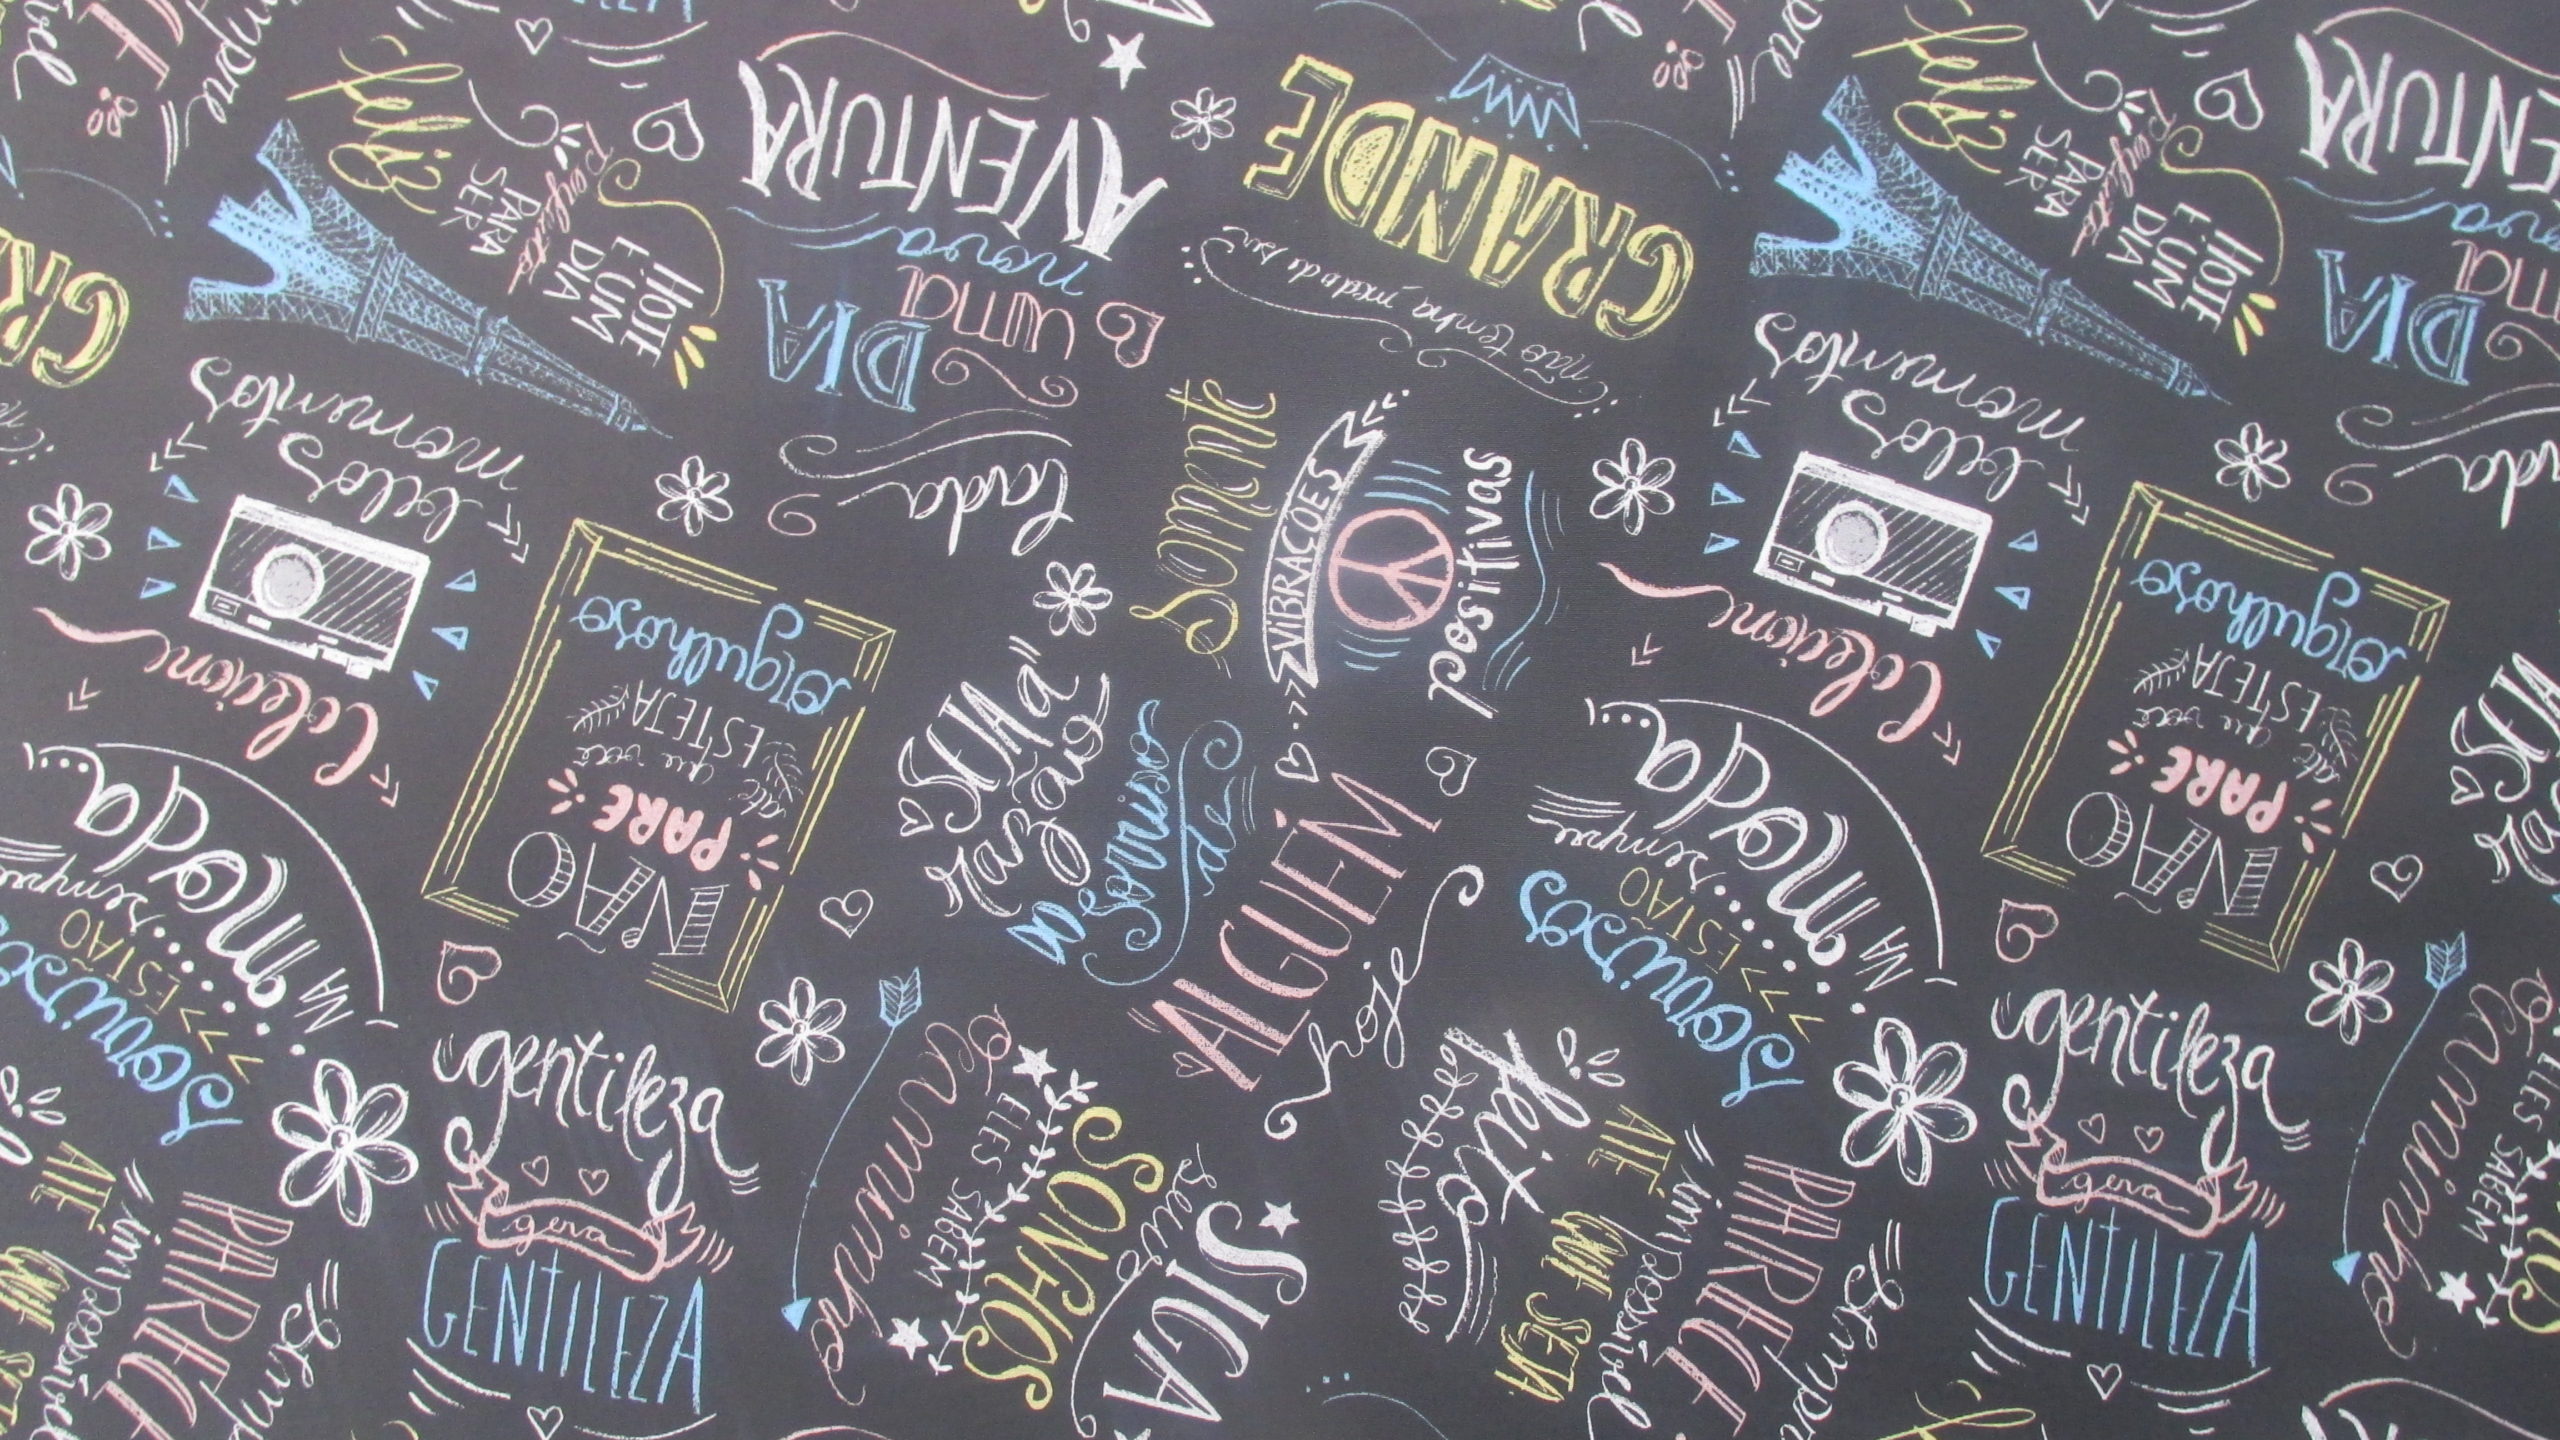 HOJE
É UM
DIA
perfeito
PARA
SER
feliz
Cada
DIA
uma
nova
AVENTURA
não tenha medo de ser
GRANDE
HOJE
É UM
DIA
perfeito
PARA
SER
feliz
DIA
uma
nova
AVENTURA
Colecione
belos
momentos
Somente
VIBRAÇÕES
positivas
Colecione
belos
momentos
NÃO
PARE
até que você
ESTEJA
orgulhoso
SEJA a
razão
do
Sorriso
de
ALGUÉM
hoje
NÃO
PARE
até que você
ESTEJA
orgulhoso
Sorrisos
ESTÃO
sempre
NA
moda
Sorrisos
ESTÃO
sempre
NA
moda
gentileza
gera
GENTILEZA
SIGA
seus
SONHOS
ELES SABEM
o caminho
Sempre
PARECE
impossível
ATÉ
QUE SEJA
feito
gentileza
gera
GENTILEZA
SONHOS
ELES SABEM
o caminho
Sempre
PARECE
impossível
ATÉ
QUE SEJA